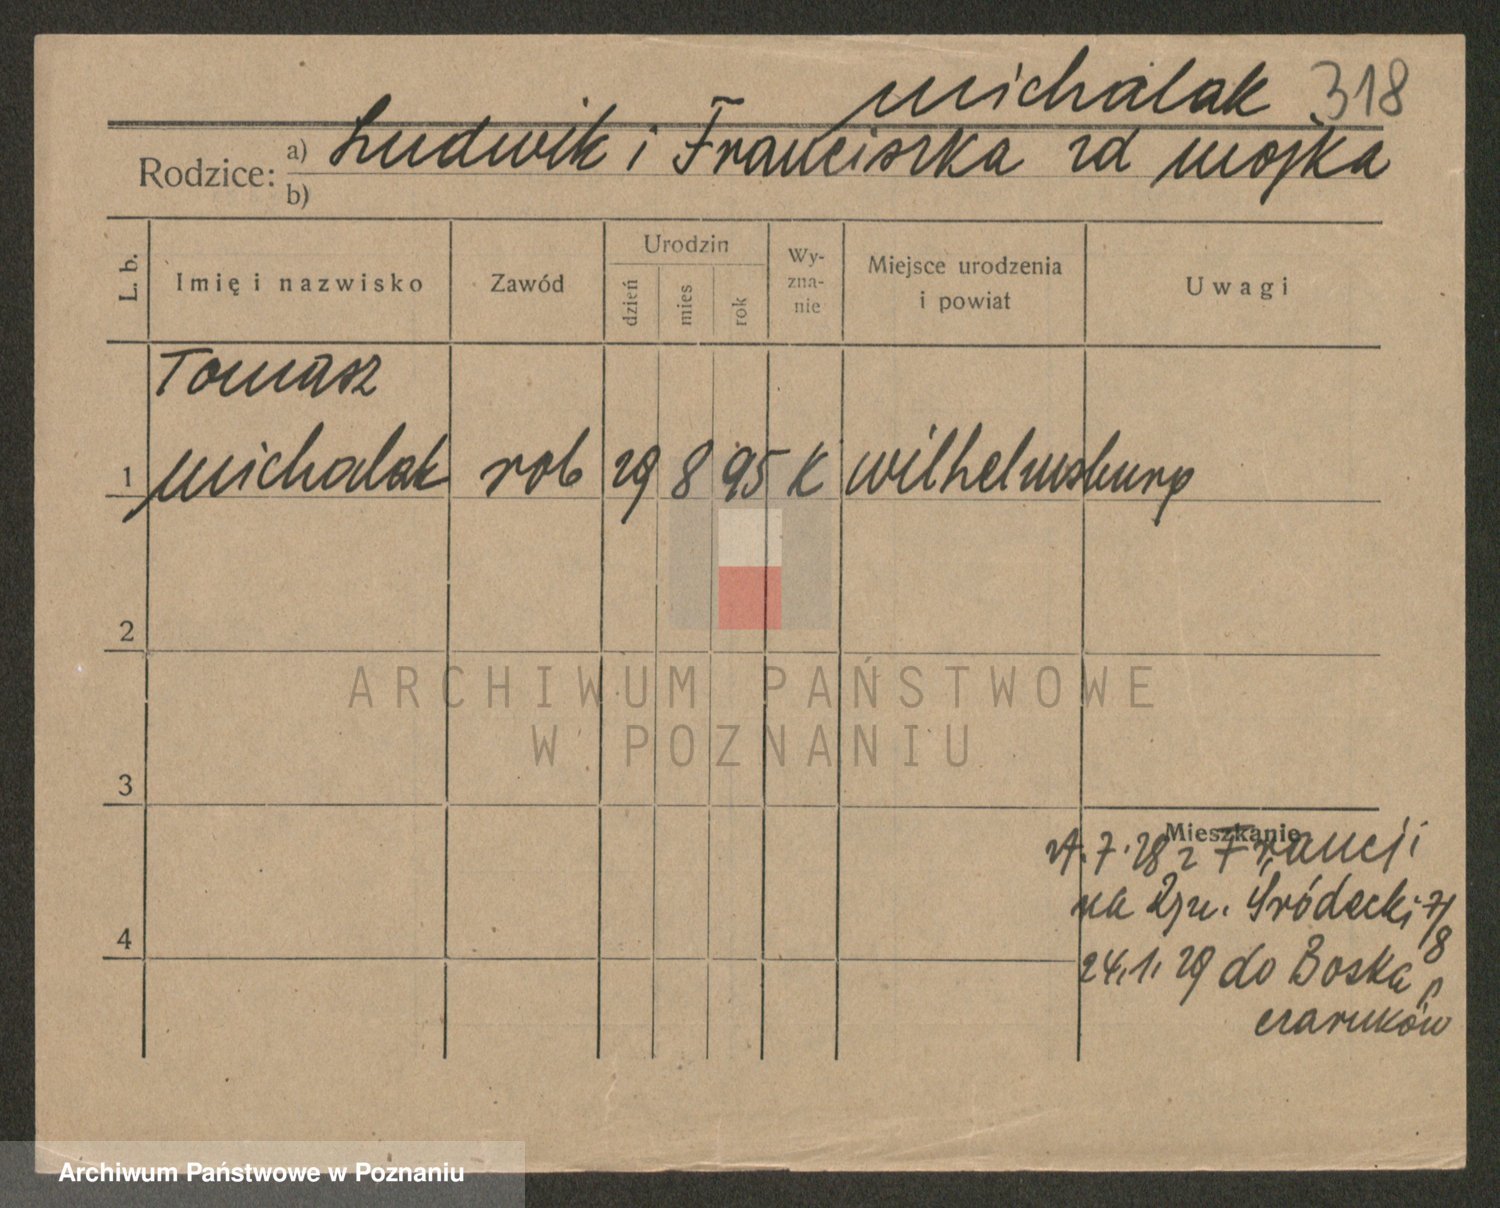 Michalak 318
Rodzice: a) Ludwik i Franciszka zd Mojka
b)
L. b.
Imię i nazwisko
Zawód
Urodzin
dzień
mies
rok
Wy-
zna-
nie
Miejsce urodzenia
i powiat
Uwagi
Tomasz
1 Michalak rob 29 8 95 K Wilhelmsburg
2
3
4
Mieszkanie
7.28 z Francji
na Ryn. Śródecki 7/8
24.1.29 do Boska p
Czarnków
ARCHIWUM PAŃSTWOWE
W POZNANIU
Archiwum Państwowe w Poznaniu